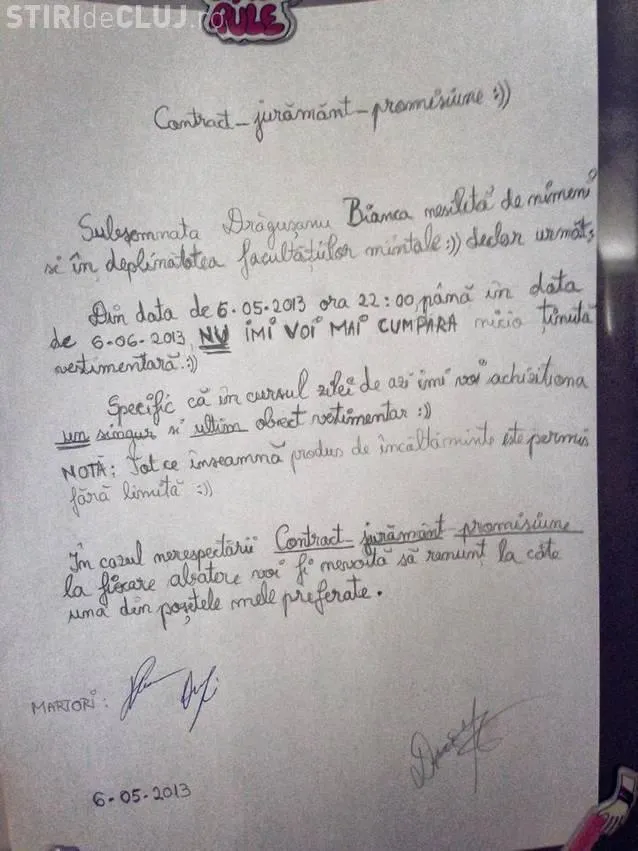 STIRIdeCLUJ.ro
RULE
Contract-jurământ-promisiune :))
Subsemnata Drăgușanu Bianca nesilită de nimeni
si în deplinătatea facultăților mintale :)) declar următ;
Din data de 6.05.2013 ora 22:00, până în data
de 6-06-2013, NU IMI VOI MAI CUMPARA nicio ținută
vestimentară :))
Specific că în cursul zilei de azi imi voi achisitiona
un singur si ultim obect vestimentar :))
NOTĂ: Tot ce înseamnă produs de încăltăminte este permis
fără limită :))
În cazul nerespectării Contract-jurământ-promisiune
la fiecare abatere voi fi nevoită să renunț la câte
una din poșetele mele preferate.
MARTORI:
6-05-2013